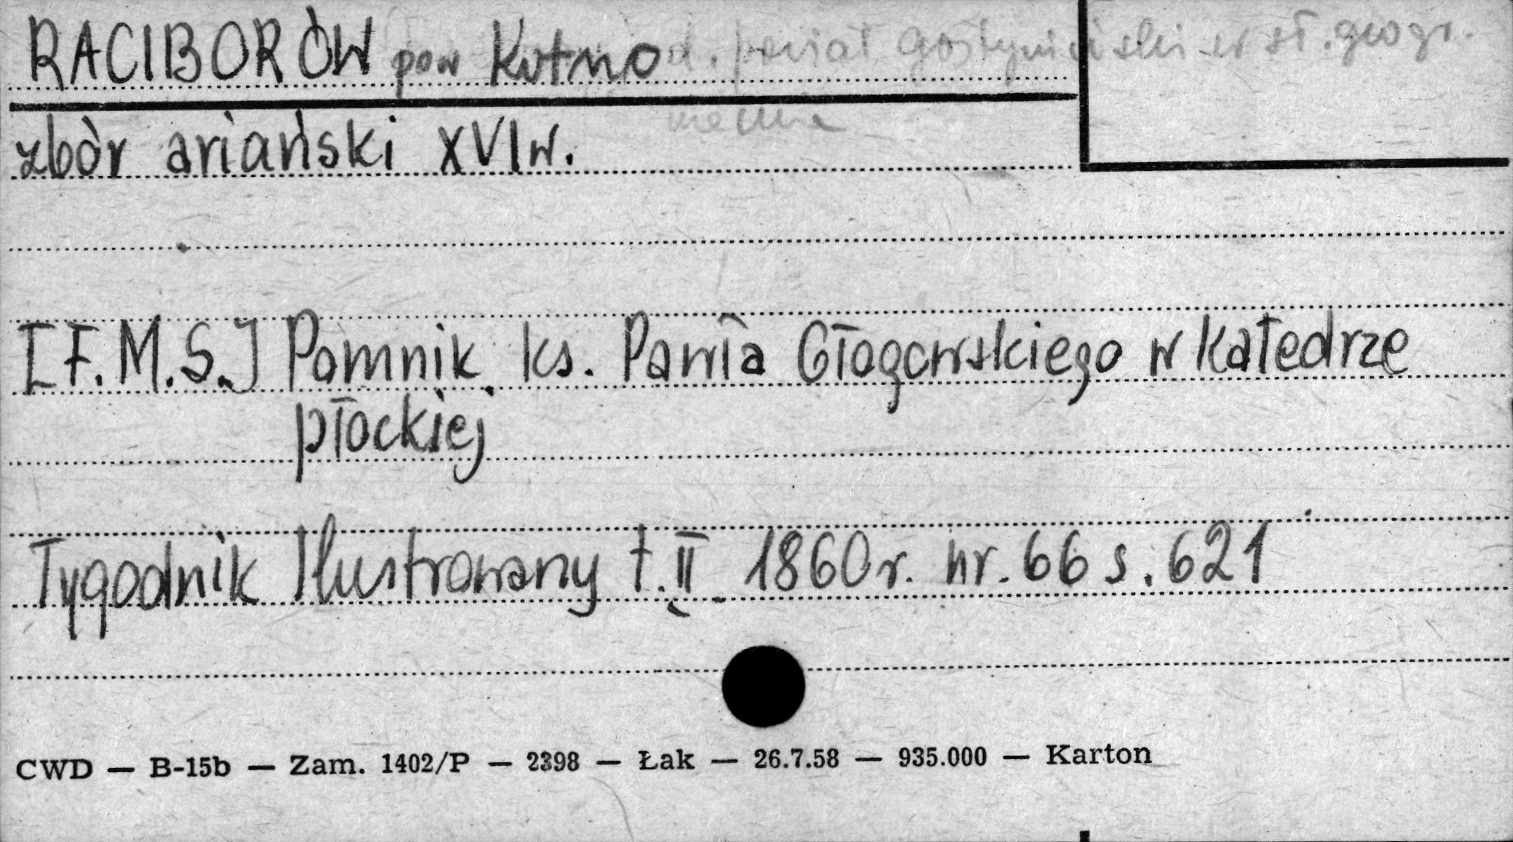 RACIBORÓW pow Kutno d. powiat gostyniński w sł. geogr.
nie ma
zbór ariański XVI w.
[F.M.S.] Pomnik ks. Pawła Głogowskiego w Katedrze
płockiej
Tygodnik Ilustrowany t. II 1860 r. nr. 66 s. 621
CWD — B-15b — Zam. 1402/P — 2398 — Łak — 26.7.58 — 935.000 — Karton